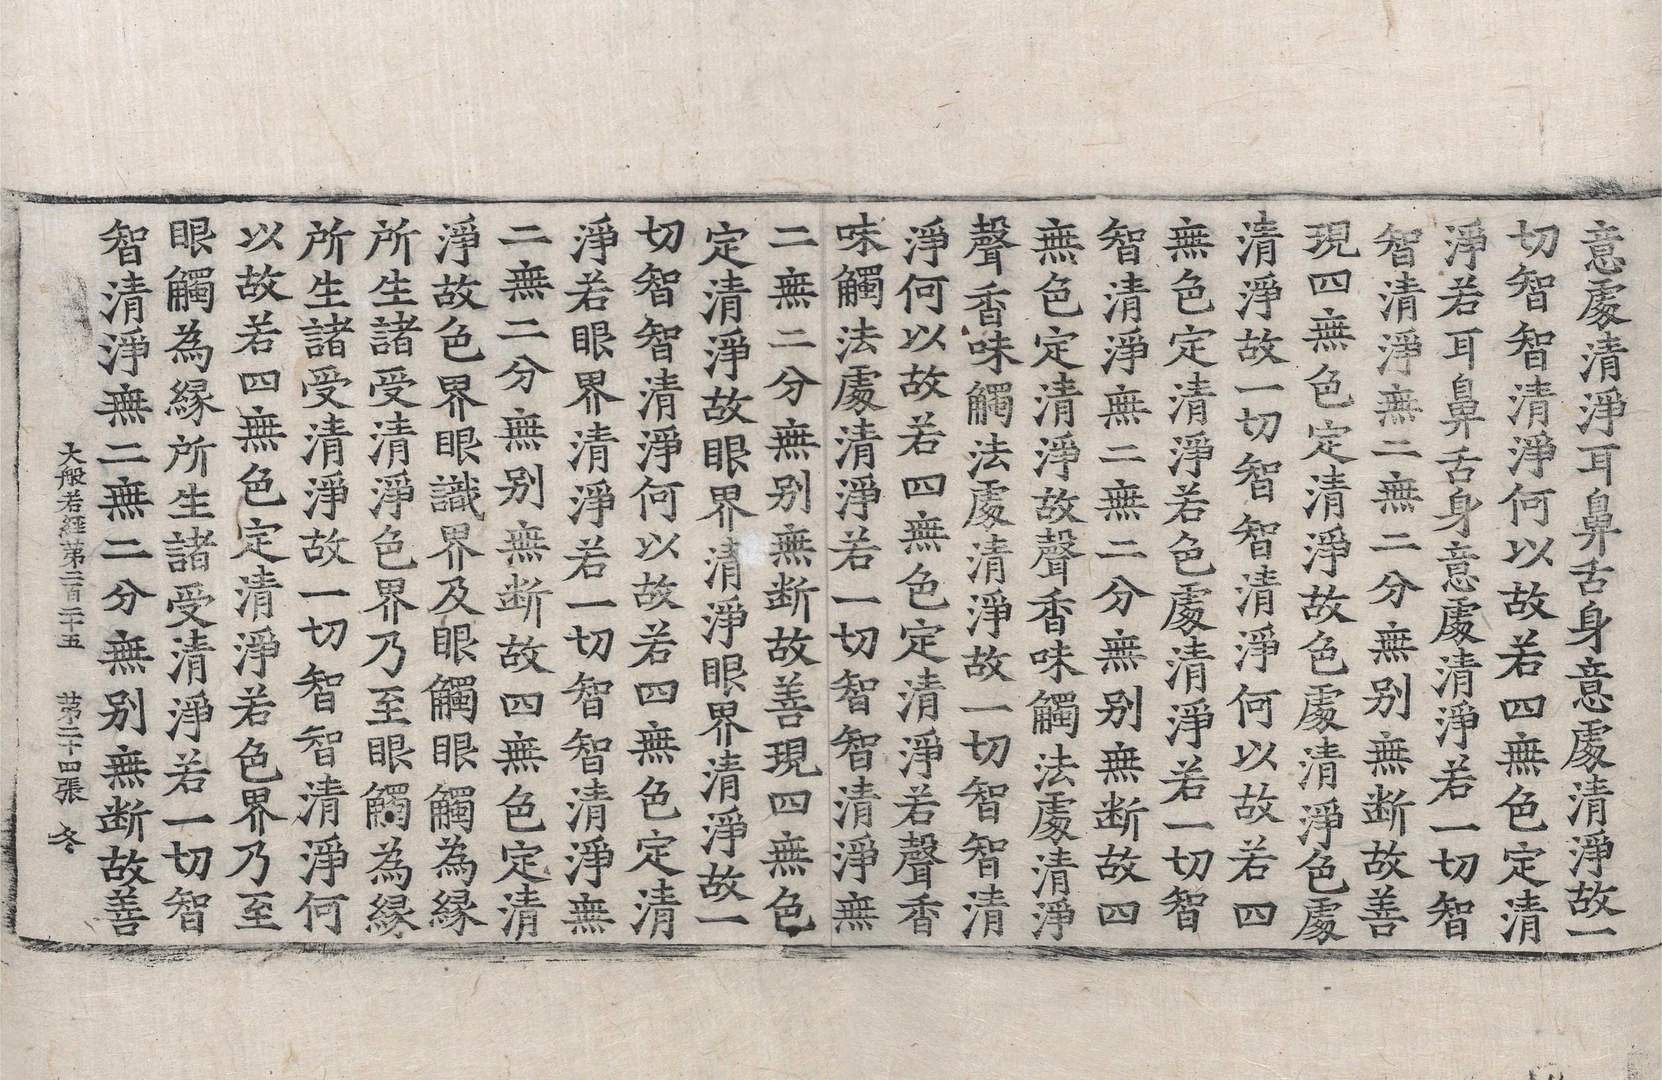 意處清淨耳鼻舌身意處清淨故一
切智智清淨何以故若四無色定清
淨若耳鼻舌身意處清淨若一切智
智清淨無二無二分無别無断故善
現四無色定清淨故色處清淨色處
清淨故一切智智清淨何以故若四
無色定清淨若色處清淨若一切智
智清淨無二無二分無别無断故四
無色定清淨故聲香味觸法處清淨
聲香味觸法處清淨故一切智智清
淨何以故若四無色定清淨若聲香
味觸法處清淨若一切智智清淨無
二無二分無别無断故善現四無色
定清淨故眼界清淨眼界清淨故一
切智智清淨何以故若四無色定清
淨若眼界清淨若一切智智清淨無
二無二分無别無断故四無色定清
淨故色界眼識界及眼觸眼觸為縁
所生諸受清淨色界乃至眼觸為縁
所生諸受清淨故一切智智清淨何
以故若四無色定清淨若色界乃至
眼觸為縁所生諸受清淨若一切智
智清淨無二無二分無别無断故善
大般若經苐二百二十五 苐二十四張 冬